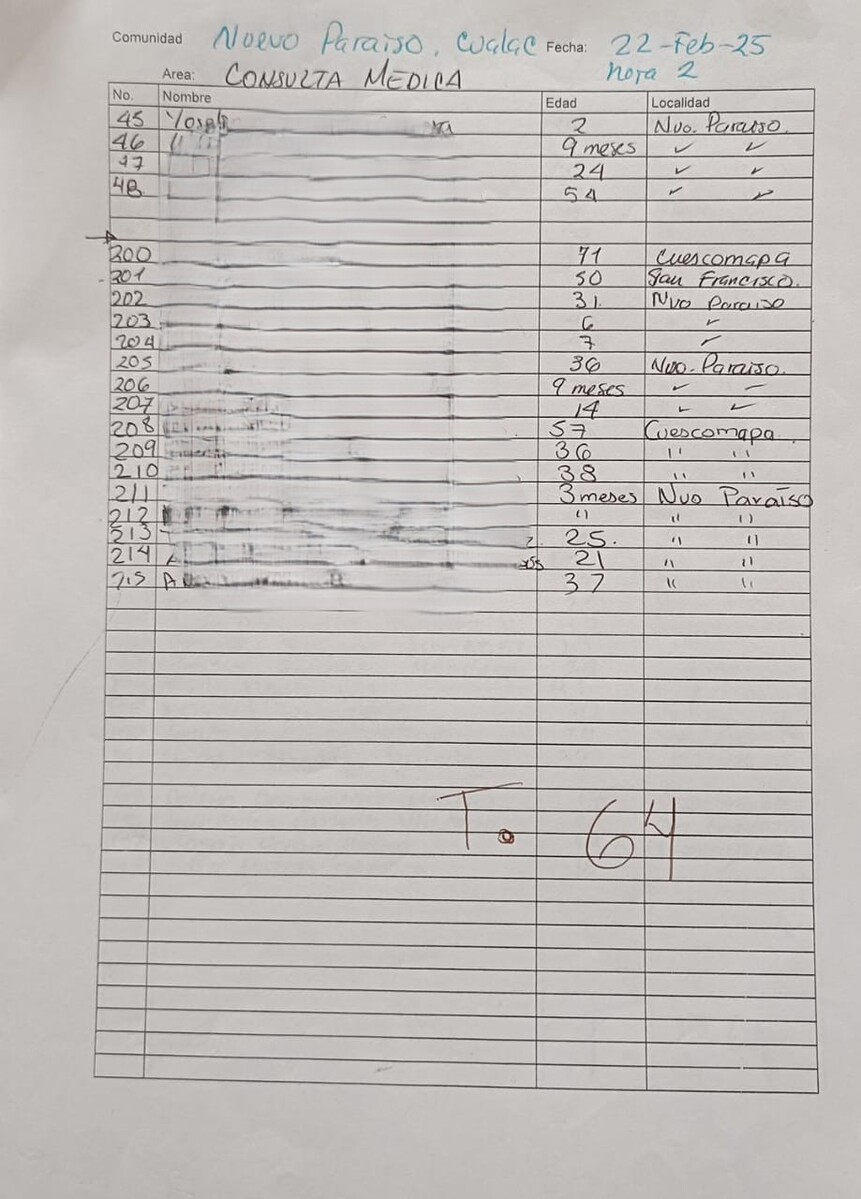 Comunidad Nuevo Paraiso, Cualac Fecha: 22-Feb-25
Area: CONSULTA MEDICA hora 2
No. Nombre Edad Localidad
45 2 Nvo. Paraiso.
46 9 meses ✓ ✓
47 24 ✓ ✓
48 54 ✓ ✓
200 71 Cuescomapa
201 50 San Francisco.
202 31. Nvo Paraiso
203 6 ✓
204 7 ✓
205 36 Nvo. Paraiso.
206 9 meses ✓ –
207 14 ✓ ✓
208 57 Cuescomapa.
209 36 " "
210 38 " "
211 3 meses Nvo Paraíso
212 " " "
213 25. " "
214 21 " "
215 A 37 " "
T. 64